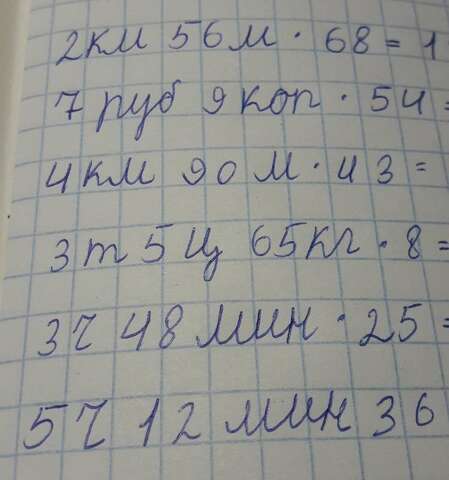 2км 56м · 68 = 1
7 руб 9 коп · 54 =
4км 90 м · 43 =
3т 5 ц 65кг · 8 =
3ч 48 мин · 25 =
5ч 12 мин 36